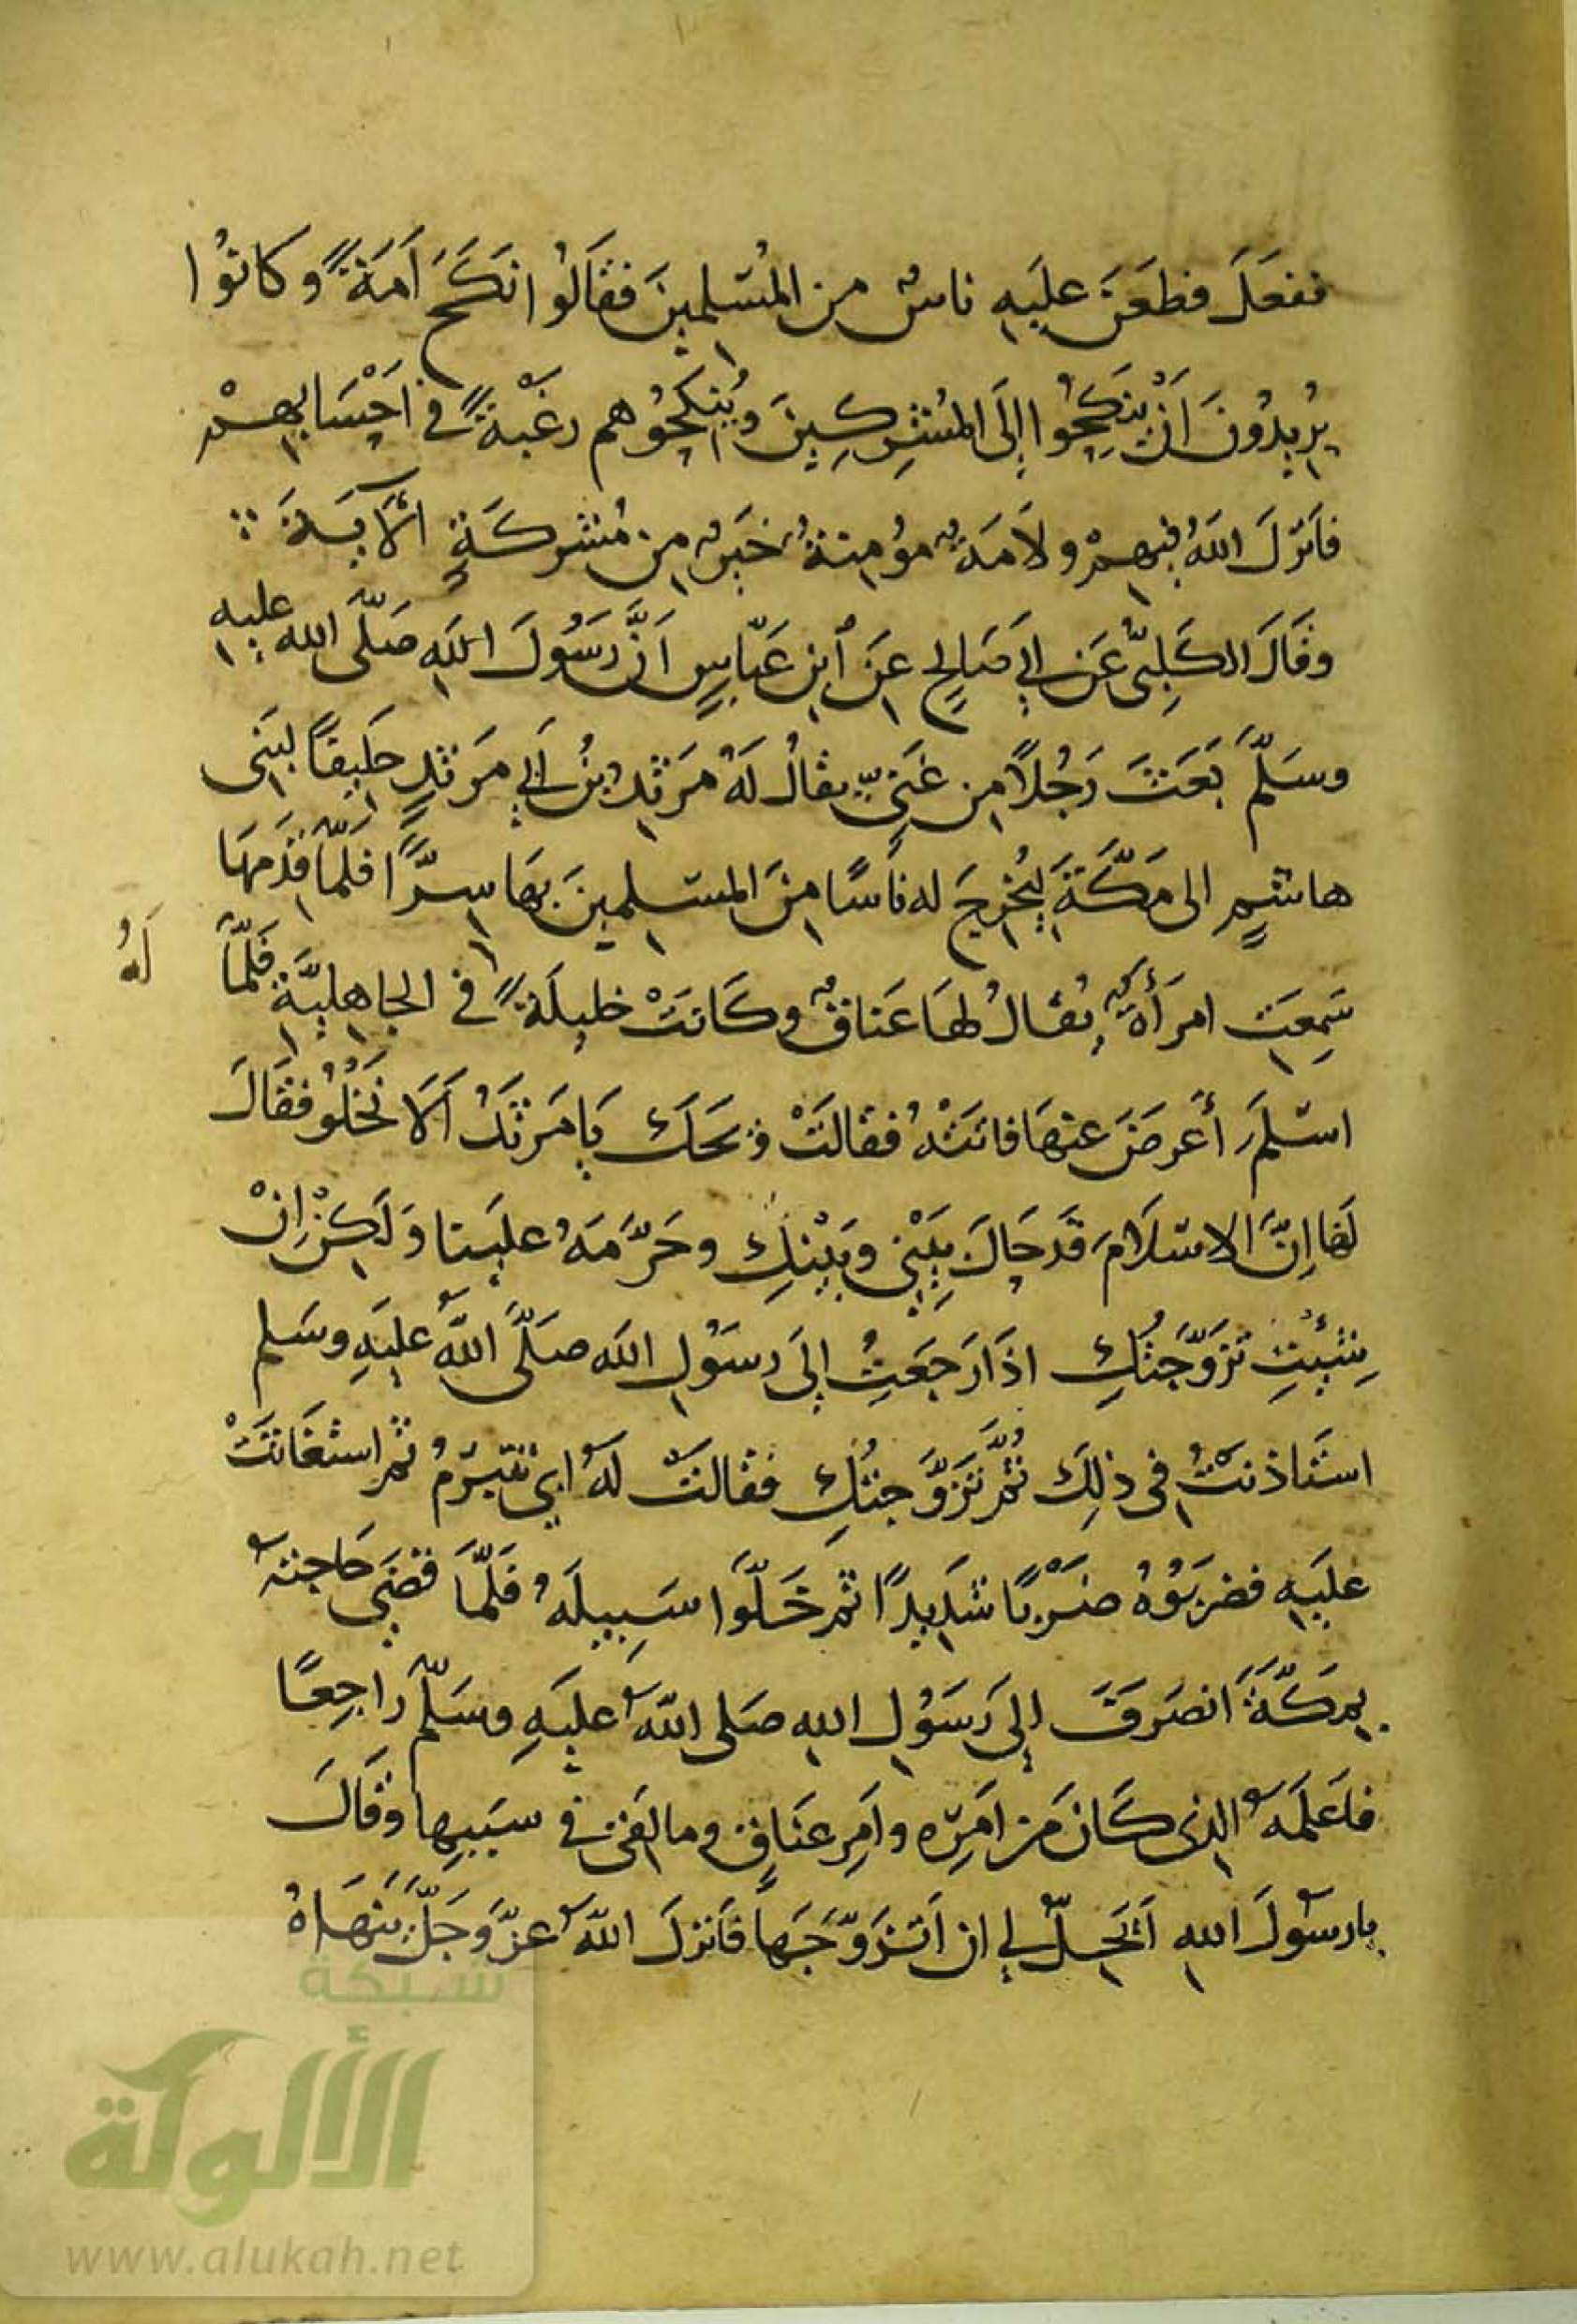 ففعَلَ فطعَنَ عليَهِ ناسٌ من المُسْلمينَ فقَالوُا انَكَحَ اَمَةً وكانوُا
يُريدُونَ اَنْ يَنكِحُوا إلَى المُشرِكِينَ ويُنكِحُوهم رغْبةً في اَحْسَابِهمْ
فاَنزلَ اللهُ فيهمْ ولاَمَةٌ مؤُمِنةٌ خيَرٌ مِن مُشْركَةٍ الآيَةَ
وقَالَ الكَلِبىُّ عَن اَبي صَالِحٍ عَن ابنِ عَبّاسٍ اَنَّ رَسُولَ اللهِ صَلّى الله عليهِ
وسَلّمَ بَعَثَ رَجُلاً مِن غَنىٍّ يقالُ لَهُ مَرَثدُ بنُ اَبي مَرثدٍ حَليفًا لبَنى
هاشمٍ الى مَكّةَ ليُخرِجَ له ناَسًا مِنَ المسلِمينَ بهَا سِرًّا فلمّا قدَمِهَا
سَمِعَت امرَأةٌ يُقالُ لهَا عَناقٌ وكَانتَْ خليلَةً في الجاهِليَّةِ فلَمّا
لَهُ
اسْلمَ أعَرضَ عنهَا فاتتَهُْ فقالَتْ ويحَكَ يَا مَرثَدُ اَلاَ نَخْلُوُ فقالَ
لَهَا اِنَّ الاسْلاَمَ قَد حَالَ بَيْنِي وبَيْنِكِ وحَرَّمَهُ عليَنا وَلكِنْ اِنْ
شِئْتِ تزَوَّجَتُكِ اذَا رَجَعَتُ إلَى رسَوُلِ اللهِ صَلَّى اللهُ عليَهِ وسَلم
استَاذنتُ في ذلِكَ ثمُّ تزَوَّجتُكِ فقالتَ لَهُ ابي تتبَرّمُ ثم استغَاثتَْ
عليَهِ فضرَبوُهُ ضَرْبًا شدَيدًا ثم خَلّوَا سَبِيلَهُ فلَمّا قضَى حَاجتهُ
بِمَكّةَ اَنصَرفَ إلى رَسَوُلِ اللهِ صَلى اللهُ عليَهِ وسَلّمَ راَجِعًا
فاَعلَمَهُ الذى كَانَ مَن امَرِه واَمِر عنَاقٍ وما لقىَ في سبَبِهِا وقَالَ
يا رسُولَ اللهِ اَتَحِلُّ لي ان اَتزَوَّجَهَا فاَنزلَ اللهُ عزّ وَجَلَّ يَنهَاهُ
شبكة
الألوكة
www.alukah.net